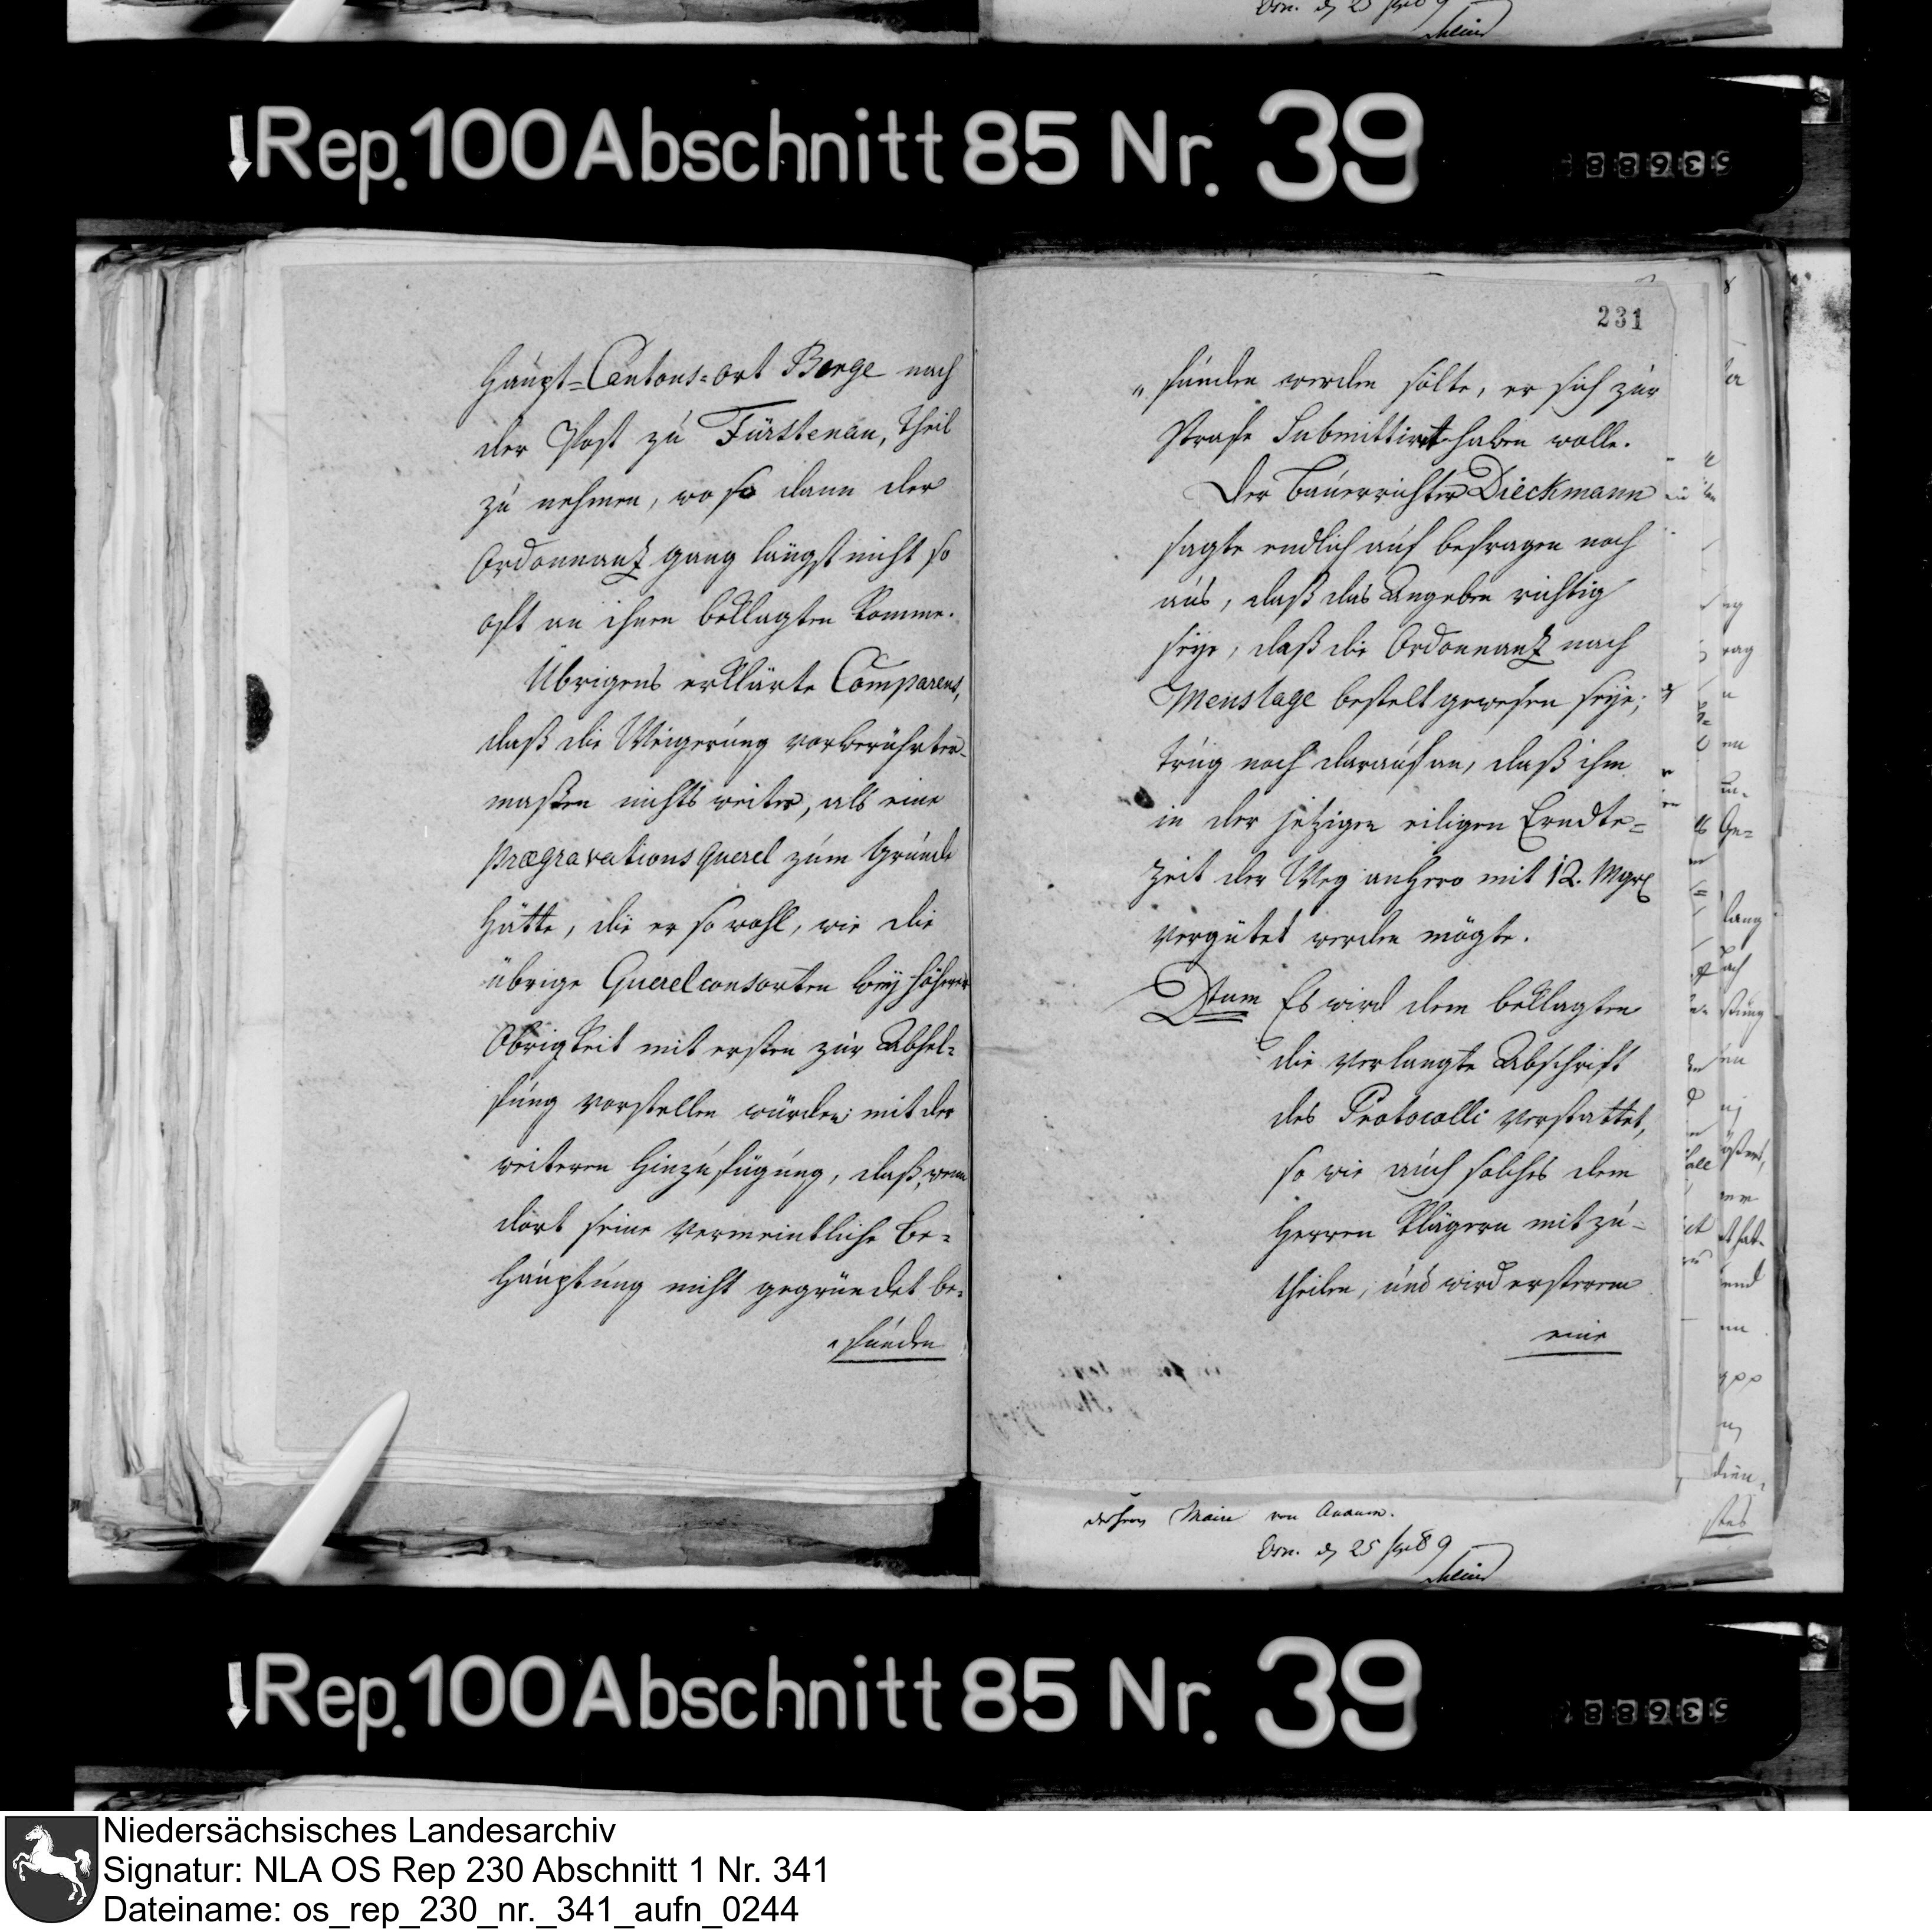 Rep. 100 Abschnitt 85 Nr. 39
Haupt=Cantons=ort Berge nach
der Post zu Fürstenau, theil
zu nehmen, wo so dann der
Ordonnantz gang längst nicht so
oft an ihnen beklagten komme.
Übrigens erklärte Comparens,
daß die Weigerung vorberührter-
maßen nichts weiter, als eine
prægravations querel zum Grunde
hätte, die er so wohl, wie die
übrige Querelconsorten bey höherer
Obrigkeit mit ersten zur Abhel-
fung vorstellen würden; mit der
weiteren Hinzufügung, daß, wenn
dort seine vermeintliche Be-
hauptung nicht gegründet be-
funden
231
"funden werden solte, er sich zur
Strafe Submittirt haben wolle.
Der Bauerrichter Dieckmann
sagte endlich auf befragen noch
aus, daß das Angeben richtig
seye, daß die Ordonnantz nach
Menslage bestelt gewesen seye;
trug noch darauf an, daß ihm
in der jetzigen eiligen Erndte-
zeit der Weg anhero mit 12. Mgr
vergütet werden mögte.
Dtum Es wird dem beklagten
die verlangte Abschrift
des Protocolli verstattet,
so wie auch solches dem
Herren Klägern mitzu-
theilen, und wird ersterem
eine
Maire von Ankum.
Osn. d 25 9
Rep. 100 Abschnitt 85 Nr. 39
Niedersächsisches Landesarchiv
Signatur: NLA OS Rep 230 Abschnitt 1 Nr. 341
Dateiname: os_rep_230_nr._341_aufn_0244